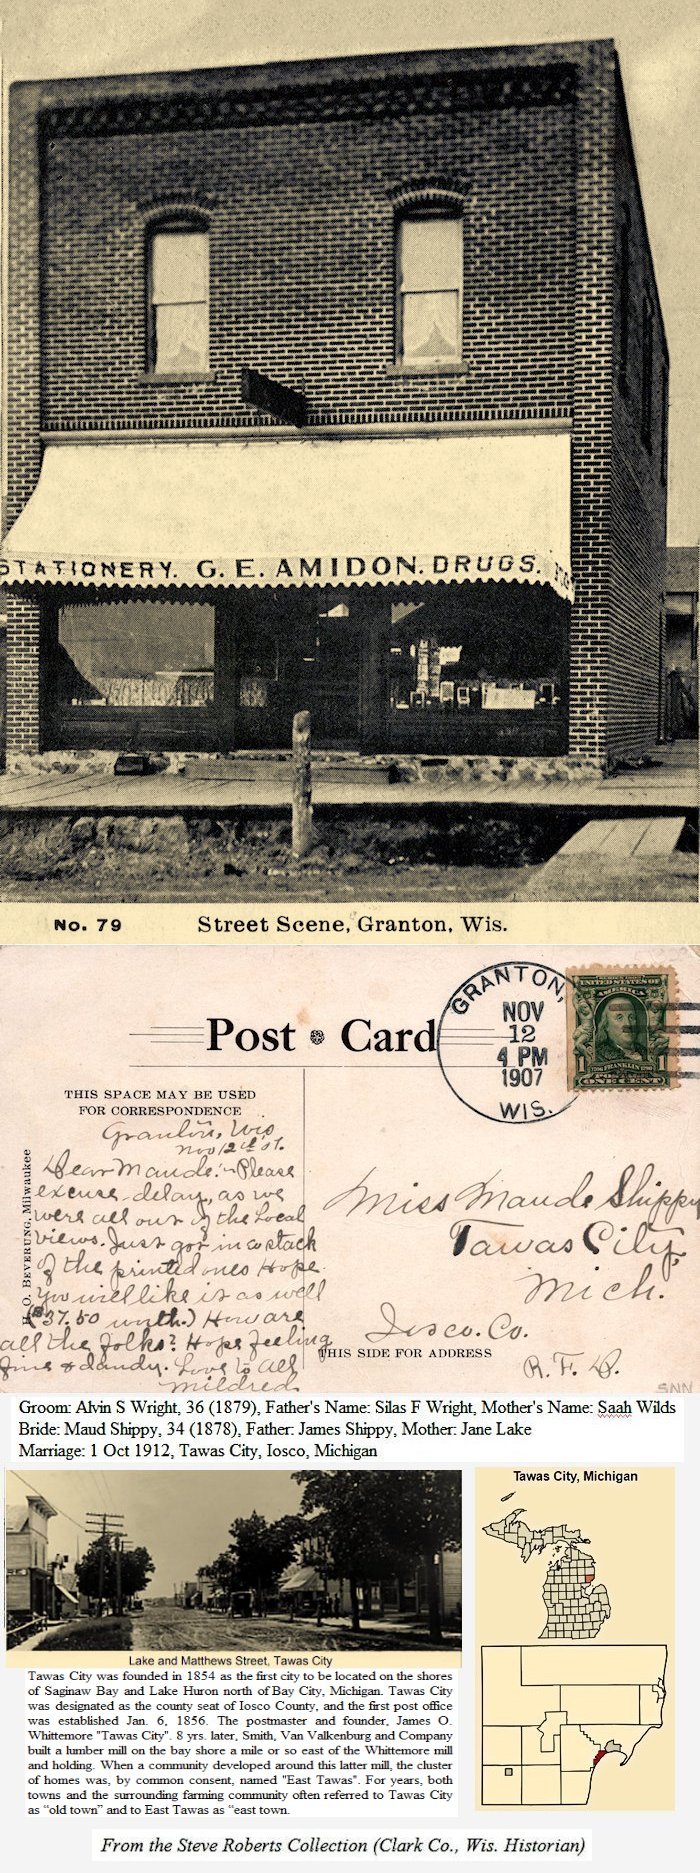 STATIONERY. G. E. AMIDON. DRUGS.
No. 79 Street Scene, Granton, Wis.
GRANTON,
NOV
12
4 PM
1907
WIS.
UNITED STATES OF
AMERICA
1 1
ONE CENT
Post Card
THIS SPACE MAY BE USED
FOR CORRESPONDENCE
Granton, Wis
Nov 12th 07.
Dear Maude:- Please
excuse delay, as we
were all out of the Local
views. Just got in a stack
of the printed ones Hope
you will like it as well
($37.50 worth.) How are
all the folks? Hope feeling
fine & dandy. Love to all
Mildred
H. O. BEVERUNG, Milwaukee
Miss Maude Shippy
Tawas City,
Mich.
Iosco. Co.
R. F. D.
THIS SIDE FOR ADDRESS
SNN
Groom: Alvin S Wright, 36 (1879), Father's Name: Silas F Wright, Mother's Name: Saah Wilds
Bride: Maud Shippy, 34 (1878), Father: James Shippy, Mother: Jane Lake
Marriage: 1 Oct 1912, Tawas City, Iosco, Michigan
Lake and Matthews Street, Tawas City
Tawas City was founded in 1854 as the first city to be located on the shores
of Saginaw Bay and Lake Huron north of Bay City, Michigan. Tawas City
was designated as the county seat of Iosco County, and the first post office
was established Jan. 6, 1856. The postmaster and founder, James O.
Whittemore "Tawas City". 8 yrs. later, Smith, Van Valkenburg and Company
built a lumber mill on the bay shore a mile or so east of the Whittemore mill
and holding. When a community developed around this latter mill, the cluster
of homes was, by common consent, named "East Tawas". For years, both
towns and the surrounding farming community often referred to Tawas City
as “old town” and to East Tawas as “east town.
Tawas City, Michigan
From the Steve Roberts Collection (Clark Co., Wis. Historian)